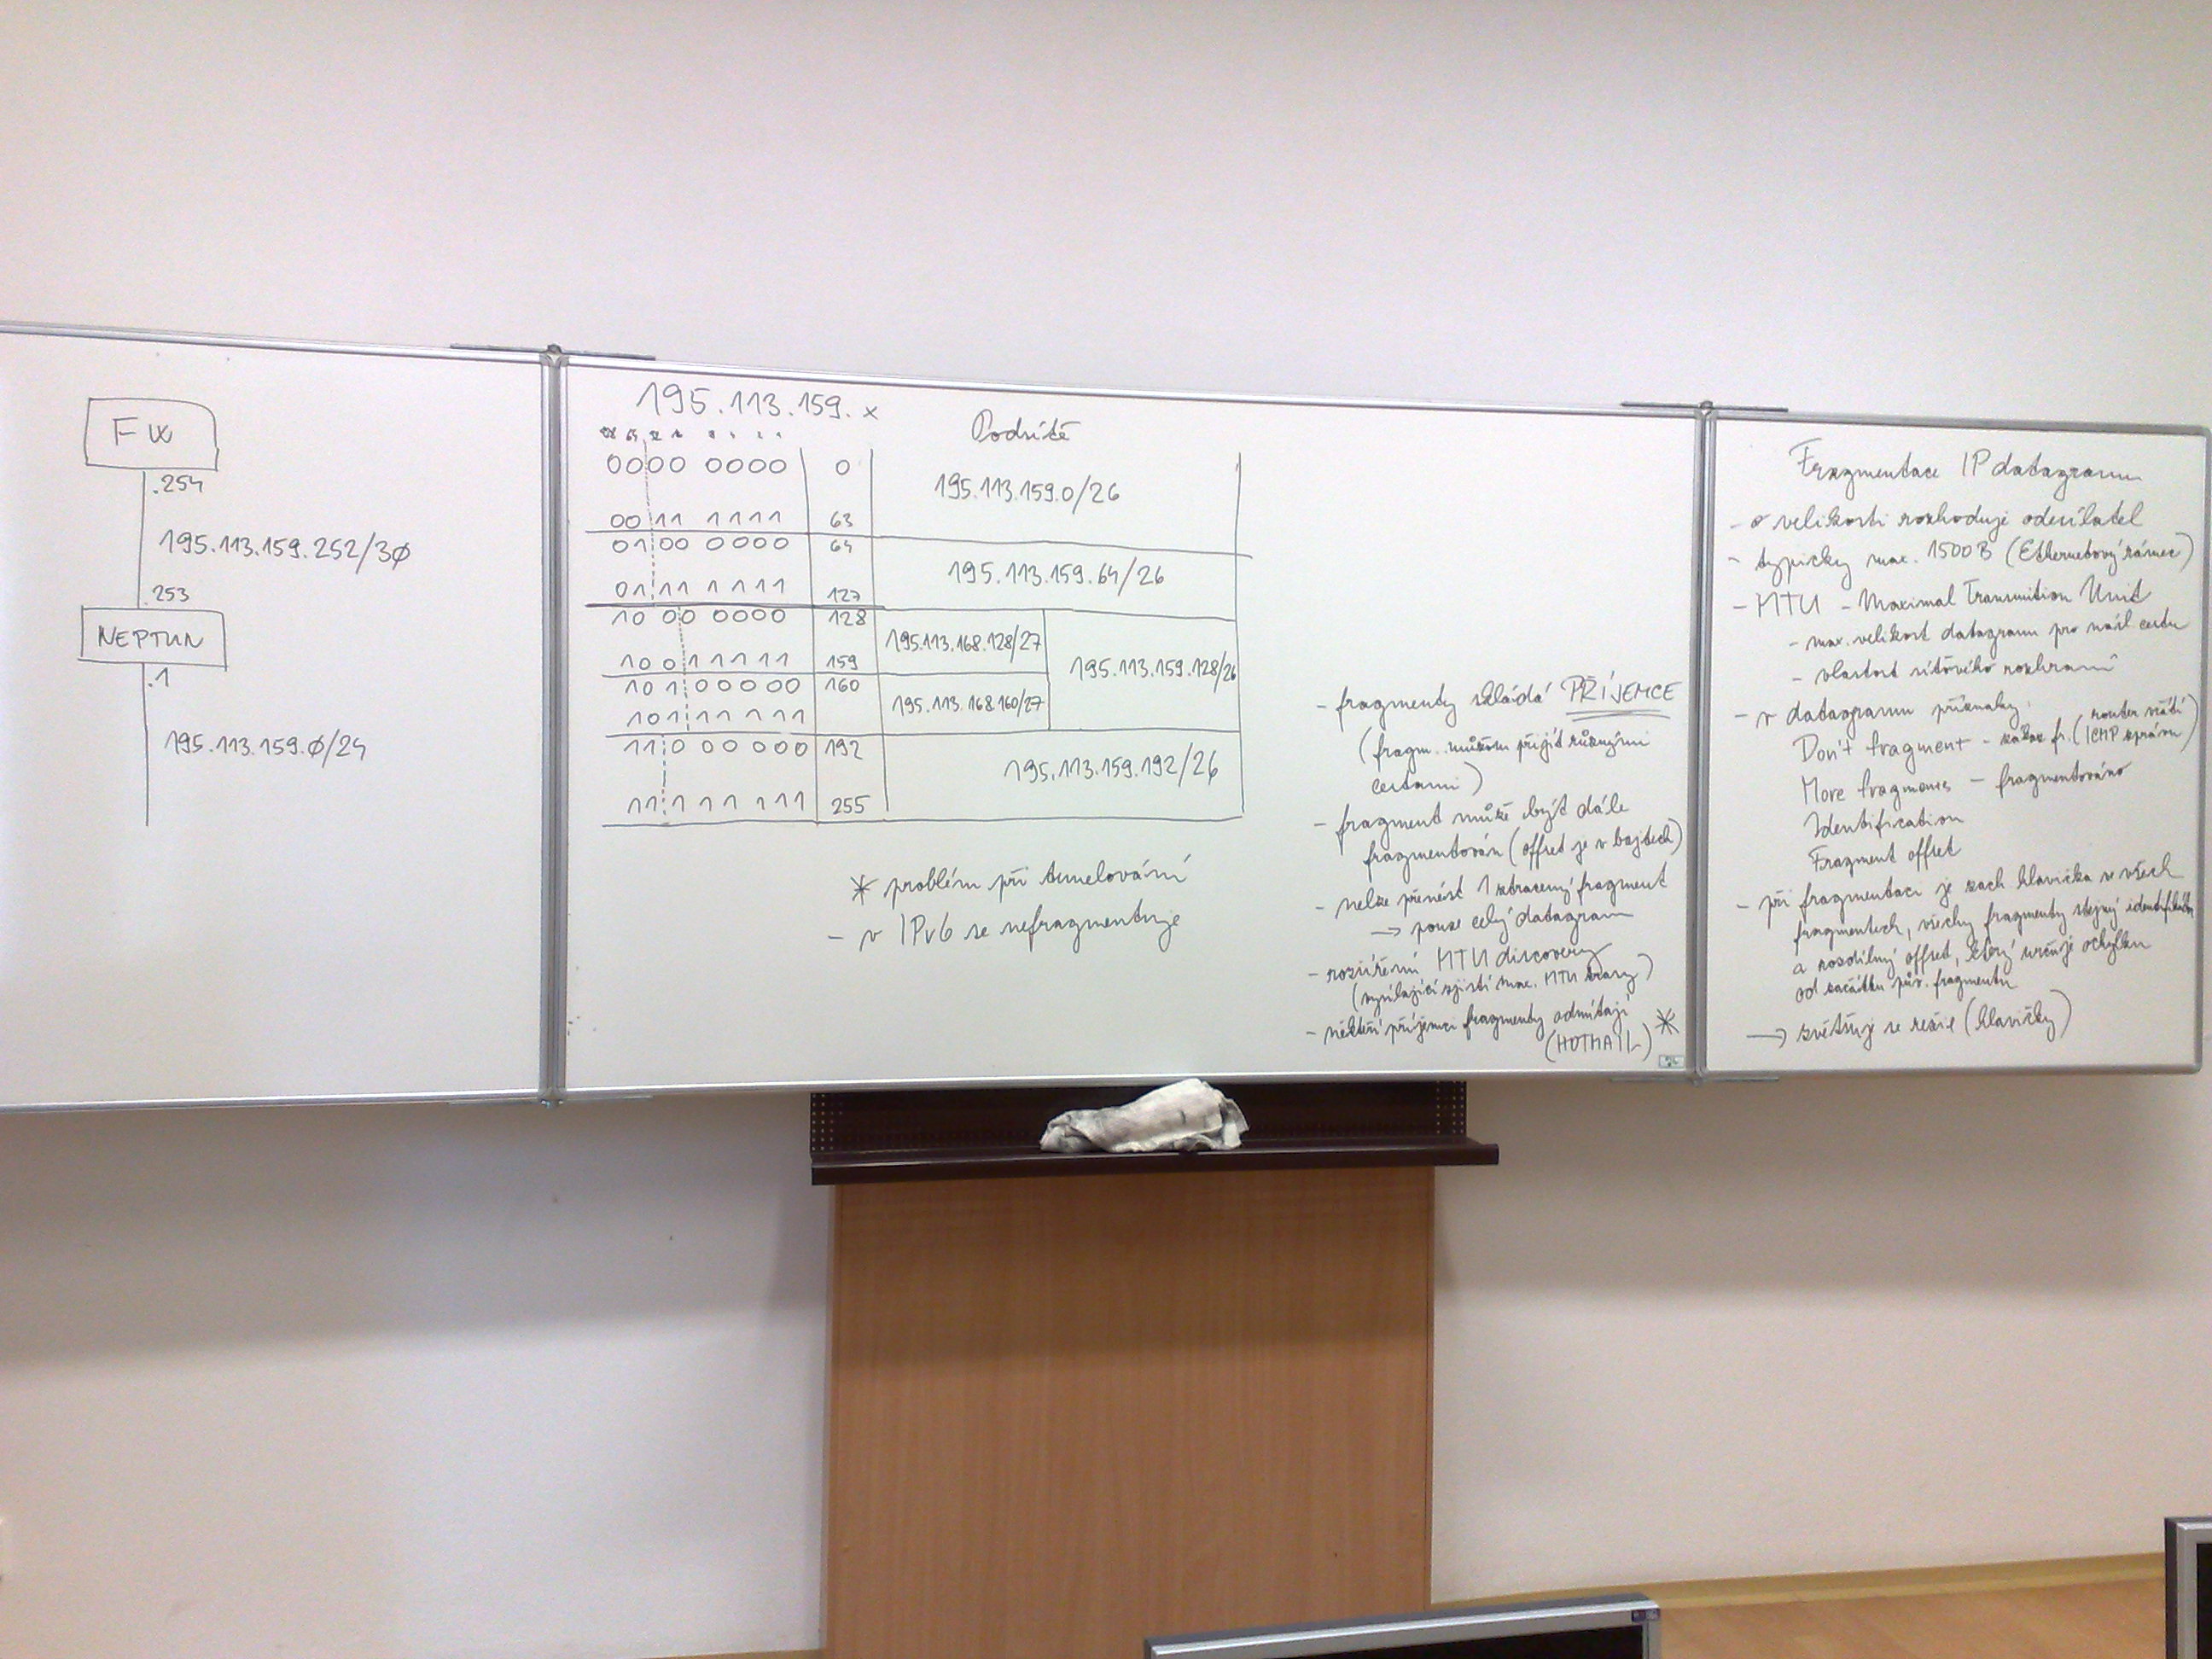 FW
.254
195.113.159.252/30
.253
NEPTUN
.1
195.113.159.0/24
195.113.159.x
Podsítě
0000 0000 0
195.113.159.0/26
0011 1111 63
0100 0000 64
195.113.159.64/26
0111 1111 127
1000 0000 128
195.113.168.128/27
195.113.159.128/26
10011111 159
10100000 160
195.113.168.160/27
10111111
11000000 192
195.113.159.192/26
11111111 255
* problém při tunelování
- v IPv6 se nefragmentuje
- fragmenty skládá PŘÍJEMCE
(fragm. můžou přijít různými
cestami)
- fragment může být dále
fragmentován (offset je v bajtech)
- nelze přenést 1 ztracený fragment
→ pouze celý datagram
- rozšíření MTU discovery
(vysílající zjistí max. MTU trasy)
- někteří příjemci fragmenty odmítají *
(HOTMAIL)
Fragmentace IP datagramu
- o velikosti rozhoduje odesílatel
- typicky max. 1500B (Ethernetový rámec)
- MTU - Maximal Transmition Unit
- max. velikost datagramu pro nás cestu
- vlastost síťového rozhraní
- v datagramu příznaky
Don't fragment - zákaz fr. (router vrátí
ICMP zprávu)
More fragments - fragmentováno
Identification
Fragment offset
- při fragmentaci je zach hlavička ve všech
fragmentech, všechny fragmenty stejný
a rozdílný offset, který určuje ochylku
od začátku pův. fragmentu
→ zvětšuje se režie (hlavičky)